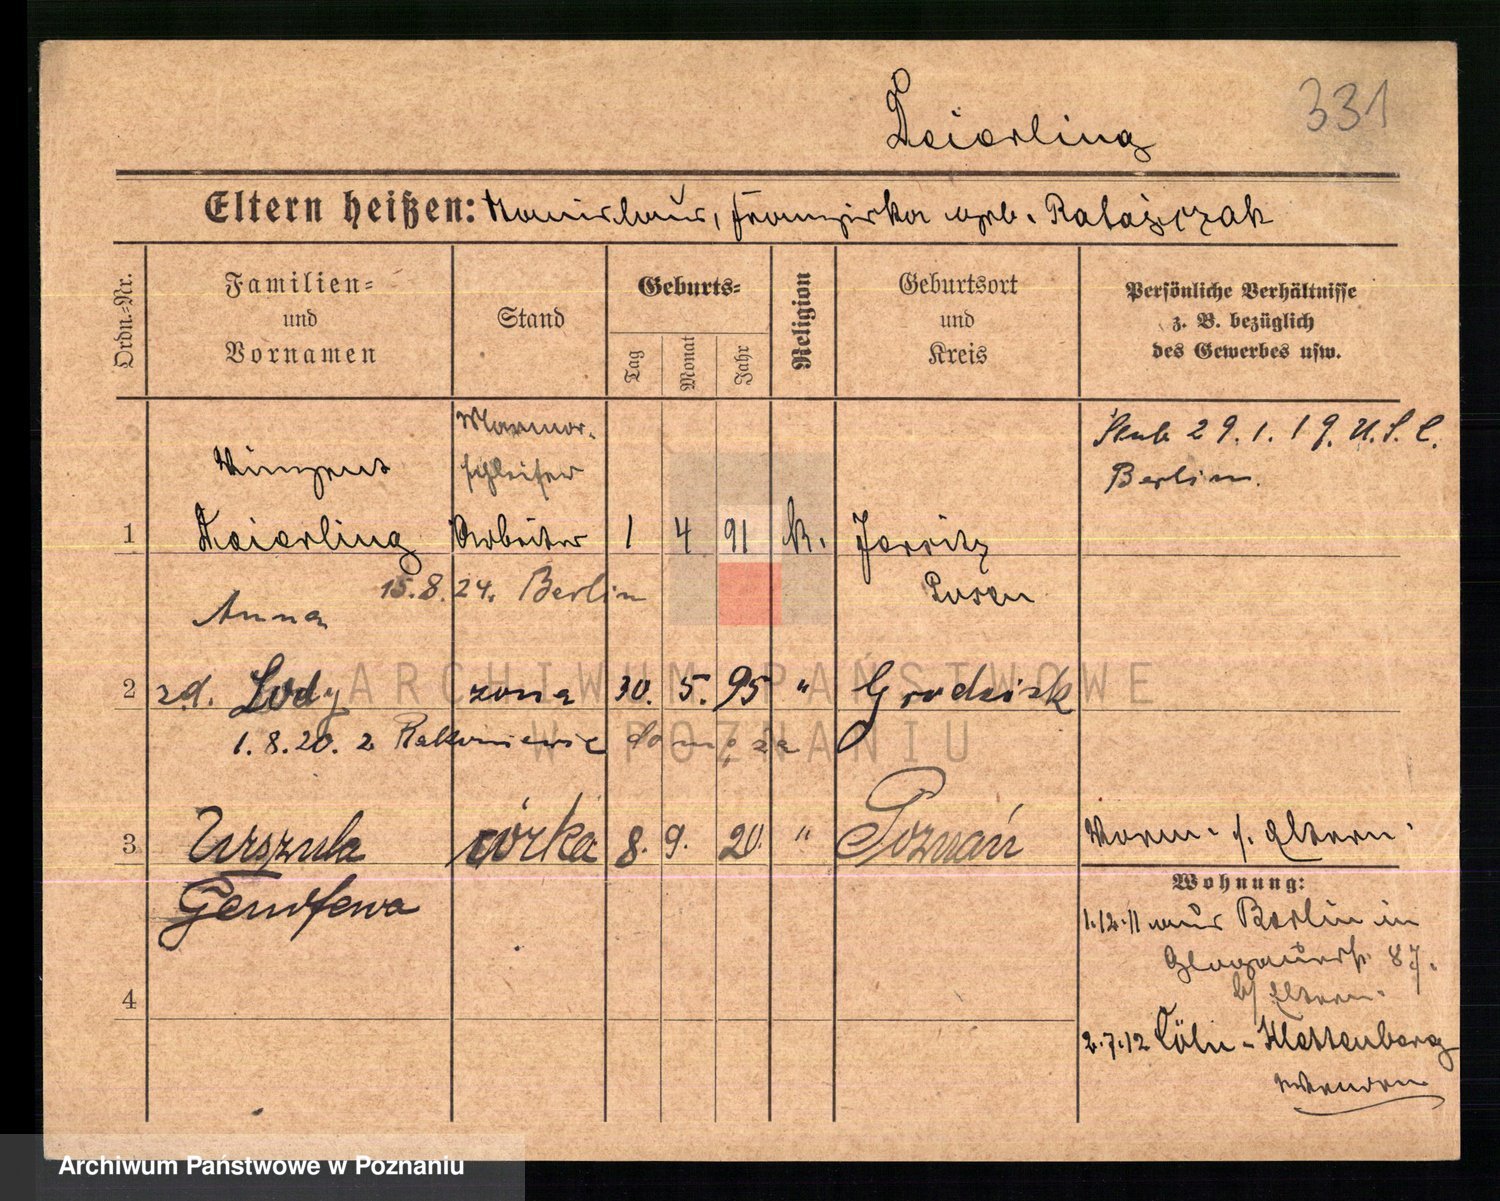 331
Deierling
Eltern heißen: Stanislaus, Franziska geb.Ratajczak
Ordn.-Nr.
Familien-
und
Vornamen
Stand
Geburts-
Tag
Monat
Jahr
Religion
Geburtsort
und
Kreis
Persönliche Verhältnisse
z. B. bezüglich
des Gewerbes usw.
Marmor-
schleifer
29.1.19. U.S.C.
Berlin.
Vinzent
1 Deierling Arbeiter 1 4 91 k. Jersitz
Posen
15.8.24. Berlin
Anna
2 zd. Lody żona 30. 5. 95 " Grodzisk
1.8.20. z Rakoniewic do męża
3 Urszula córka 8. 9. 20. " Poznań
Genofewa
Vorm. s. Eltern.
Wohnung:
1.12.11 aus Berlin in
Glogauerstr. 87.
b/ Eltern.
2.7.12 Cöln-Klettenberg
4
ARCHIWUM PAŃSTWOWE
W POZNANIU
Archiwum Państwowe w Poznaniu